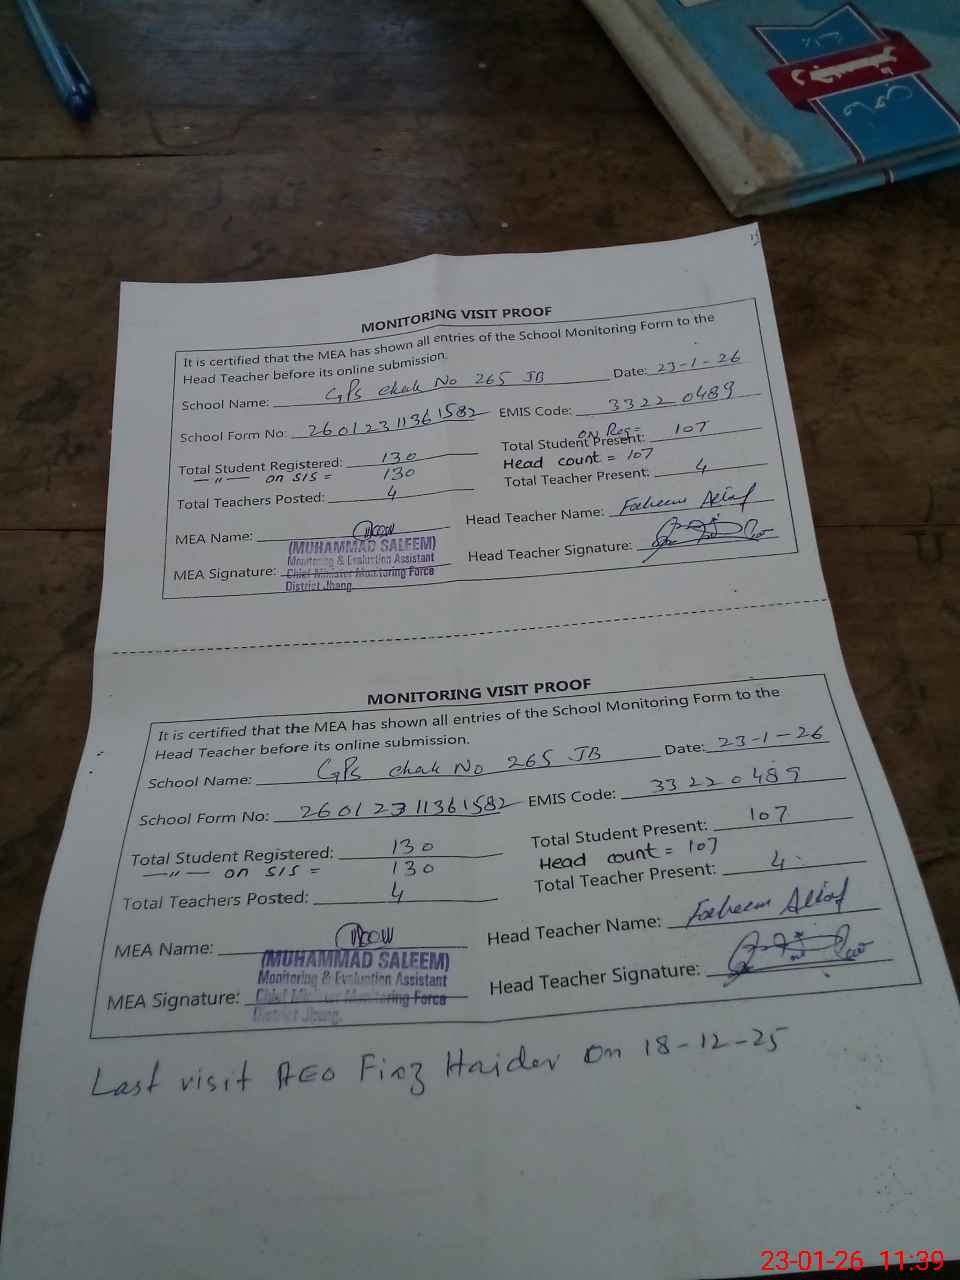 MONITORING VISIT PROOF
It is certified that the MEA has shown all entries of the School Monitoring Form to the
Head Teacher before its online submission.
School Name: GPS chak No 265 JB Date: 23-1-26
School Form No: 26012311361582 EMIS Code: 33220489
ON Reg=
Total Student Registered: 130 Total Student Present: 107
—"— on SIS = 130 Head count = 107
Total Teachers Posted: 4 Total Teacher Present: 4
MEA Name: Head Teacher Name: Faheem
(MUHAMMAD SALEEM)
Monitoring & Evaluation Assistant
MEA Signature: Chief Minister Monitoring Force Head Teacher Signature:
District Jhang.
MONITORING VISIT PROOF
It is certified that the MEA has shown all entries of the School Monitoring Form to the
Head Teacher before its online submission.
School Name: GPS chak No 265 JB Date: 23-1-26
School Form No: 26012311361582 EMIS Code: 33220489
Total Student Registered: 130 Total Student Present: 107
—"— on SIS = 130 Head count = 107
Total Teachers Posted: 4 Total Teacher Present: 4
MEA Name: Head Teacher Name: Faheem
(MUHAMMAD SALEEM)
Monitoring & Evaluation Assistant
MEA Signature: Chief Minister Monitoring Force Head Teacher Signature:
District Jhang.
Last visit AEO Fiaz Haider on 18-12-25
23-01-26 11:39